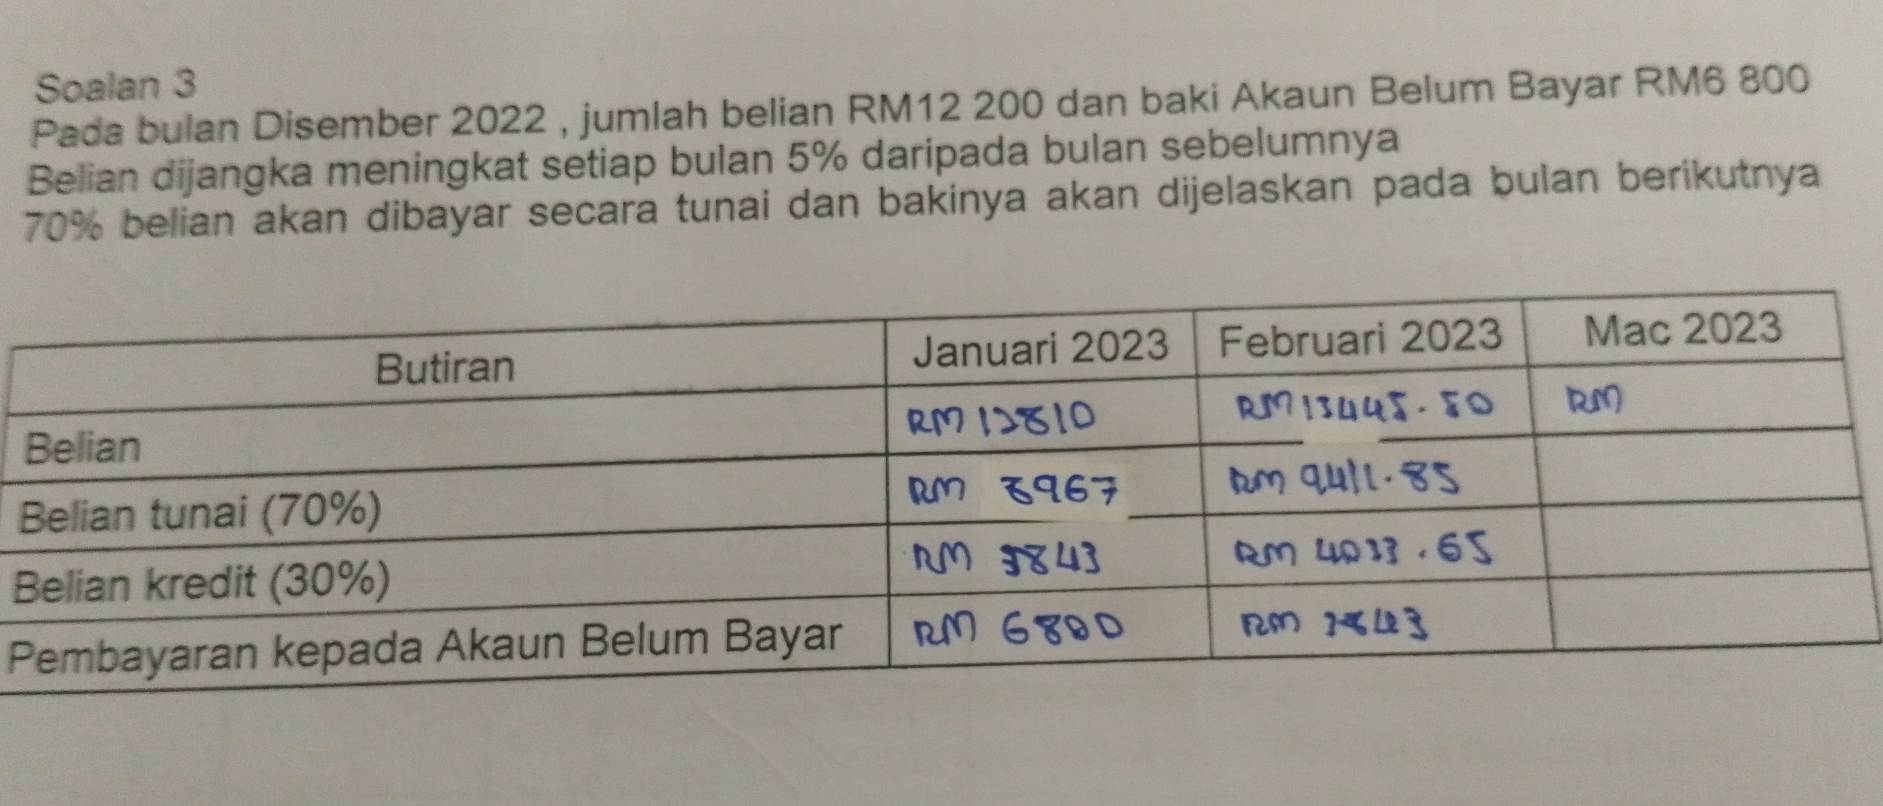 Soalan 3
Pada bulan Disember 2022 , jumlah belian RM12 200 dan baki Akaun Belum Bayar RM6 800
Belian dijangka meningkat setiap bulan 5% daripada bulan sebelumnya
70% belian akan dibayar secara tunai dan bakinya akan dijelaskan pada bulan berikutnya
Butiran Januari 2023 Februari 2023 Mac 2023
Belian RM 12810 RM 13445.50 RM
Belian tunai (70%) RM 8967 RM 9411.85
Belian kredit (30%) RM 3843 RM 4033.65
Pembayaran kepada Akaun Belum Bayar RM 6800 RM 3843